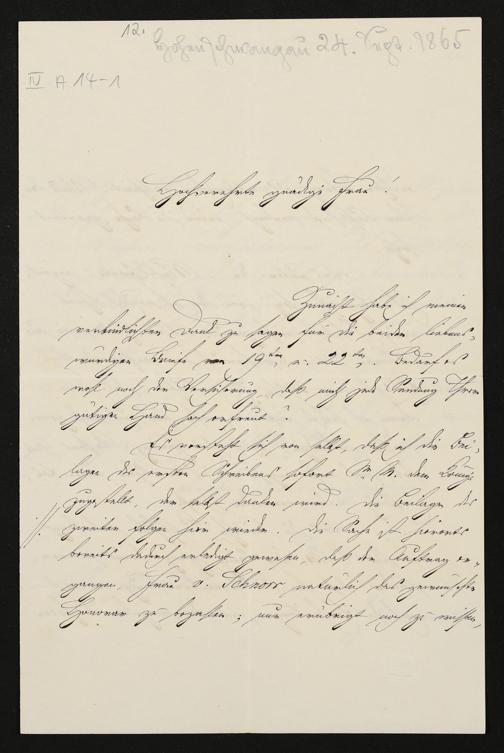 12.
Hohenschwangau 24. Sept. 1865
IV A 14-1
Hochverehrte gnädige Frau!
Zunächst habe ich meinen
verbindlichsten Dank zu sagen für die beiden liebens-
würdigen Briefe vom 19ten u. 22ten. Bedarf es
wohl noch der Versicherung, daß mich jede Sendung Ihrer
gütigen Hand hoch erfreut?
Es versteht sich von selbst, daß ich die Bei-
lagen des ersten Schreibens sofort S. M. dem König
zugestellt, der selbst danken wird. Die Beilagen des
zweiten folgen hier wieder. Die Sache ist hierorts
bereits dadurch erledigt gewesen, daß der Auftrag er-
gangen, Frau v. Schnorr natürlich das gewünschte
Honorar zu bezahlen; nur erübrigt noch zu wissen,